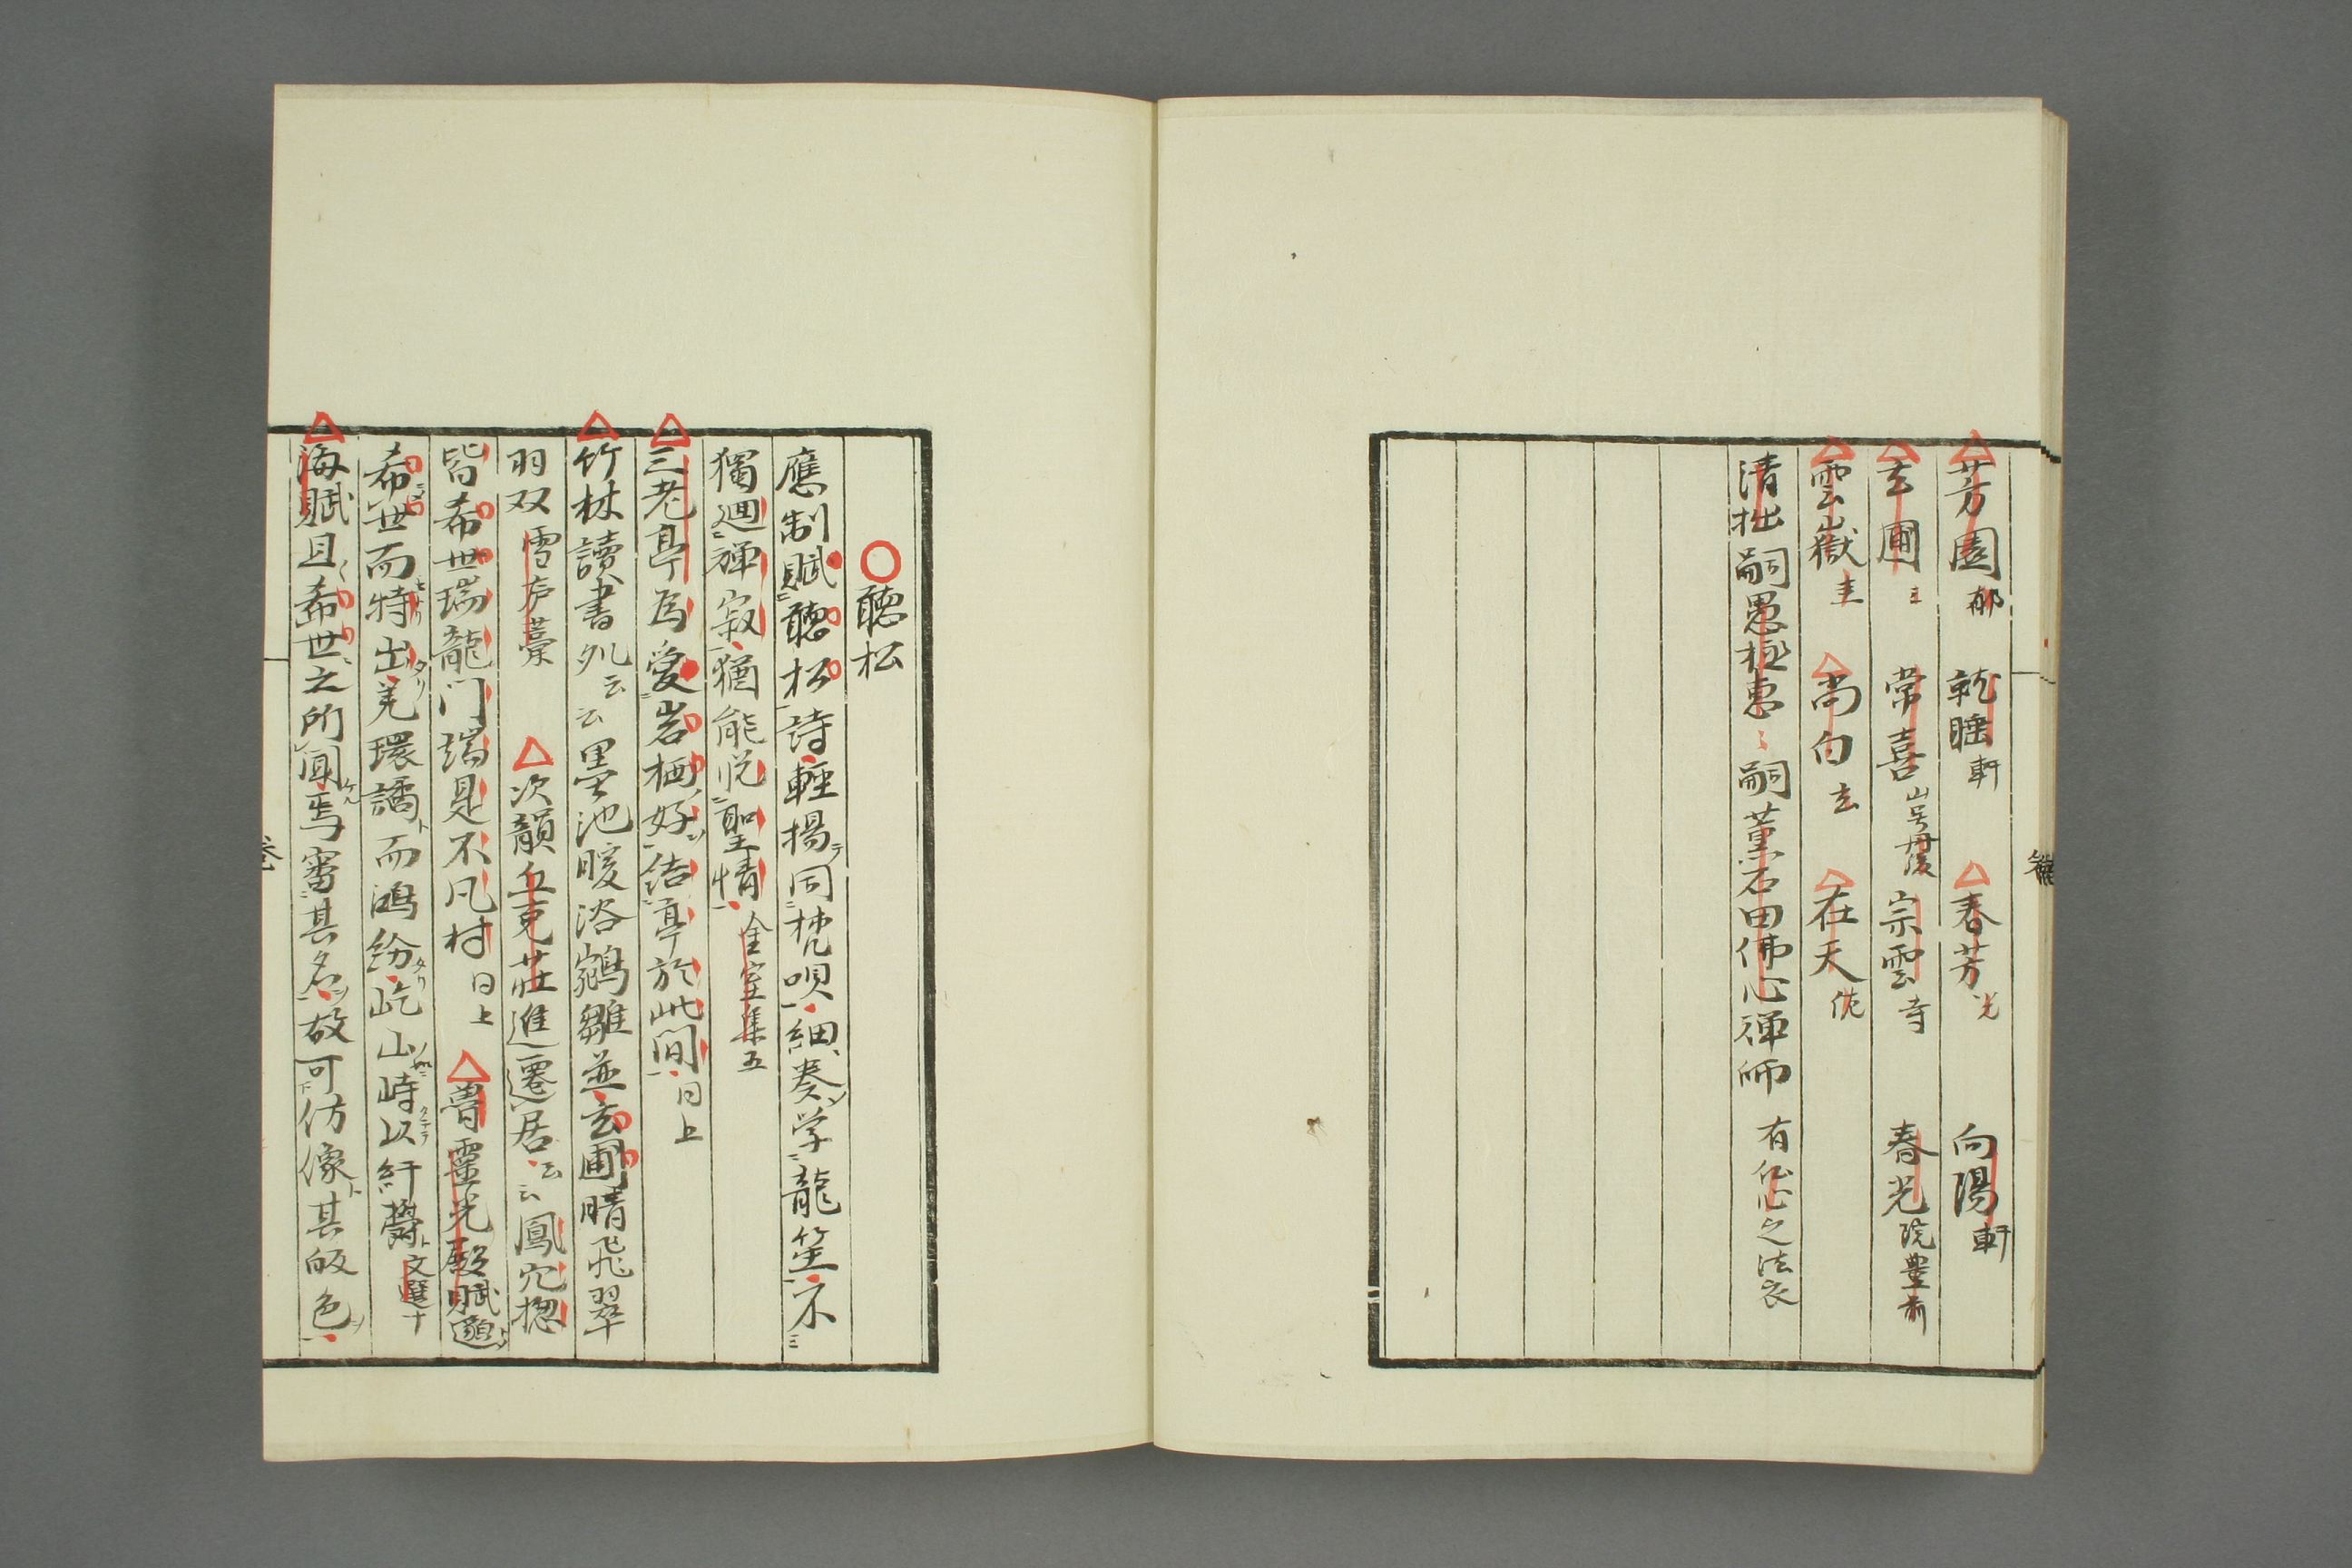 芳園郁 乾睡軒 春芳光 向陽軒
玄圃玉 常喜山号丹後 宗雲寺 春光院豊前
雲嶽圭 尚白玄 在天佐
清拙嗣愚極惠〻嗣薫石田佛心禅師 有仏心之法衣
聴松
應制賦聴松詩輕揚同梵唄細奏学龍笙不
獨廻禅寂猶能悦聖情 全室集五
三老亭 為愛岩栖好結亭於此間 同上
竹林讀書処云云墨池暖浴鵷雛並玄圃晴飛翠
羽双 雪庐藁 次韻丘克荘進遷居云云鳳穴揔
皆希世瑞龍门端是不凡材 同上 魯靈光殿賦邈
希世而特出羌環譎而鴻紛屹山峙以紆欝 文選十
海賦且希世之所聞焉審其名故可仿像其色